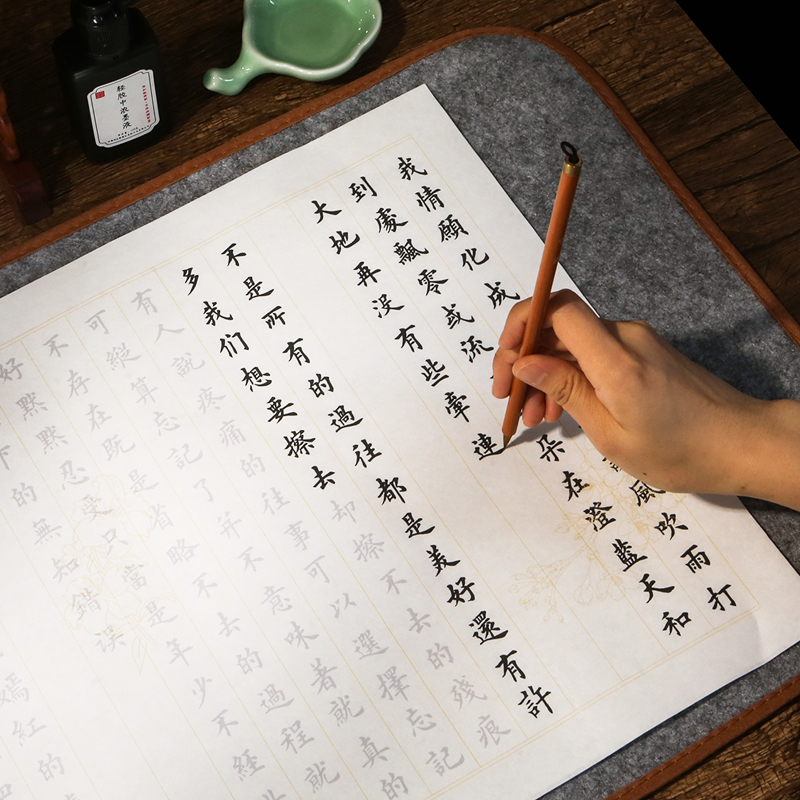 轻胶中浓墨液
我情願化成風吹雨打
到處飄零或流朵在澄藍天和
大地再沒有些牽連
不是所有的過往都是美好還有許
多我们想要擦去却擦不去的殘痕
有人説疼痛的往事可以選擇忘記
可縱算忘記了并不意味着就真的
不存在既是省略不去的過程就
好默默忍受只當是年少不經
下的無知錯误
嫣紅的